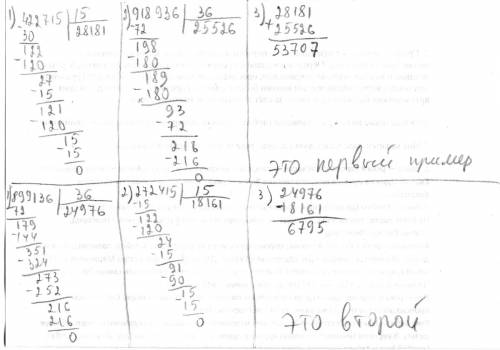 1) 422715 | 15
-30 | 28181
122
-120
27
-15
121
-120
15
-15
0
2) 918936 | 36
-72 | 25526
198
-180
189
-180
93
-72
216
-216
0
3) 28181
+ 25526
53707
это первый пример
1) 899136 | 36
72 | 24976
179
-144
351
-324
273
-252
216
216
0
2) 272415 | 15
-15 | 18161
122
-120
24
-15
91
-90
15
15
0
3) 24976
-18161
6795
это второй